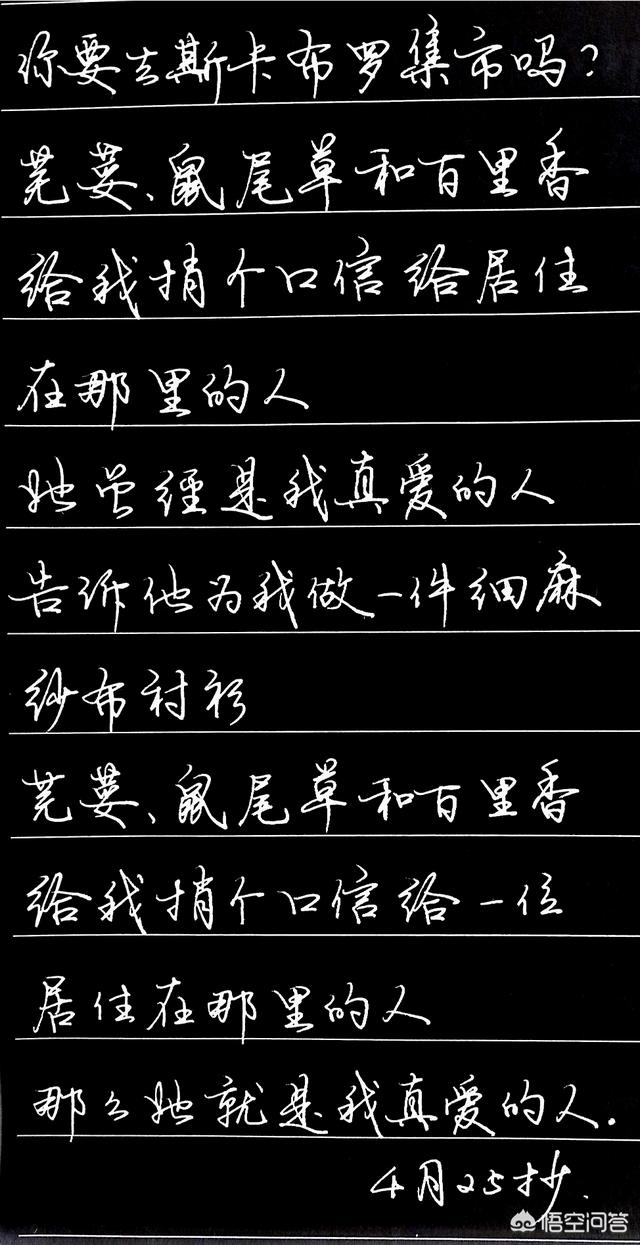 你要去斯卡布罗集市吗？
芫荽、鼠尾草和百里香
给我捎个口信给居住
在那里的人
她曾经是我真爱的人
告诉他为我做一件细麻
纱布衬衫
芫荽、鼠尾草和百里香
给我捎个口信给一位
居住在那里的人
那么她就是我真爱的人.
4月25抄.
悟空问答